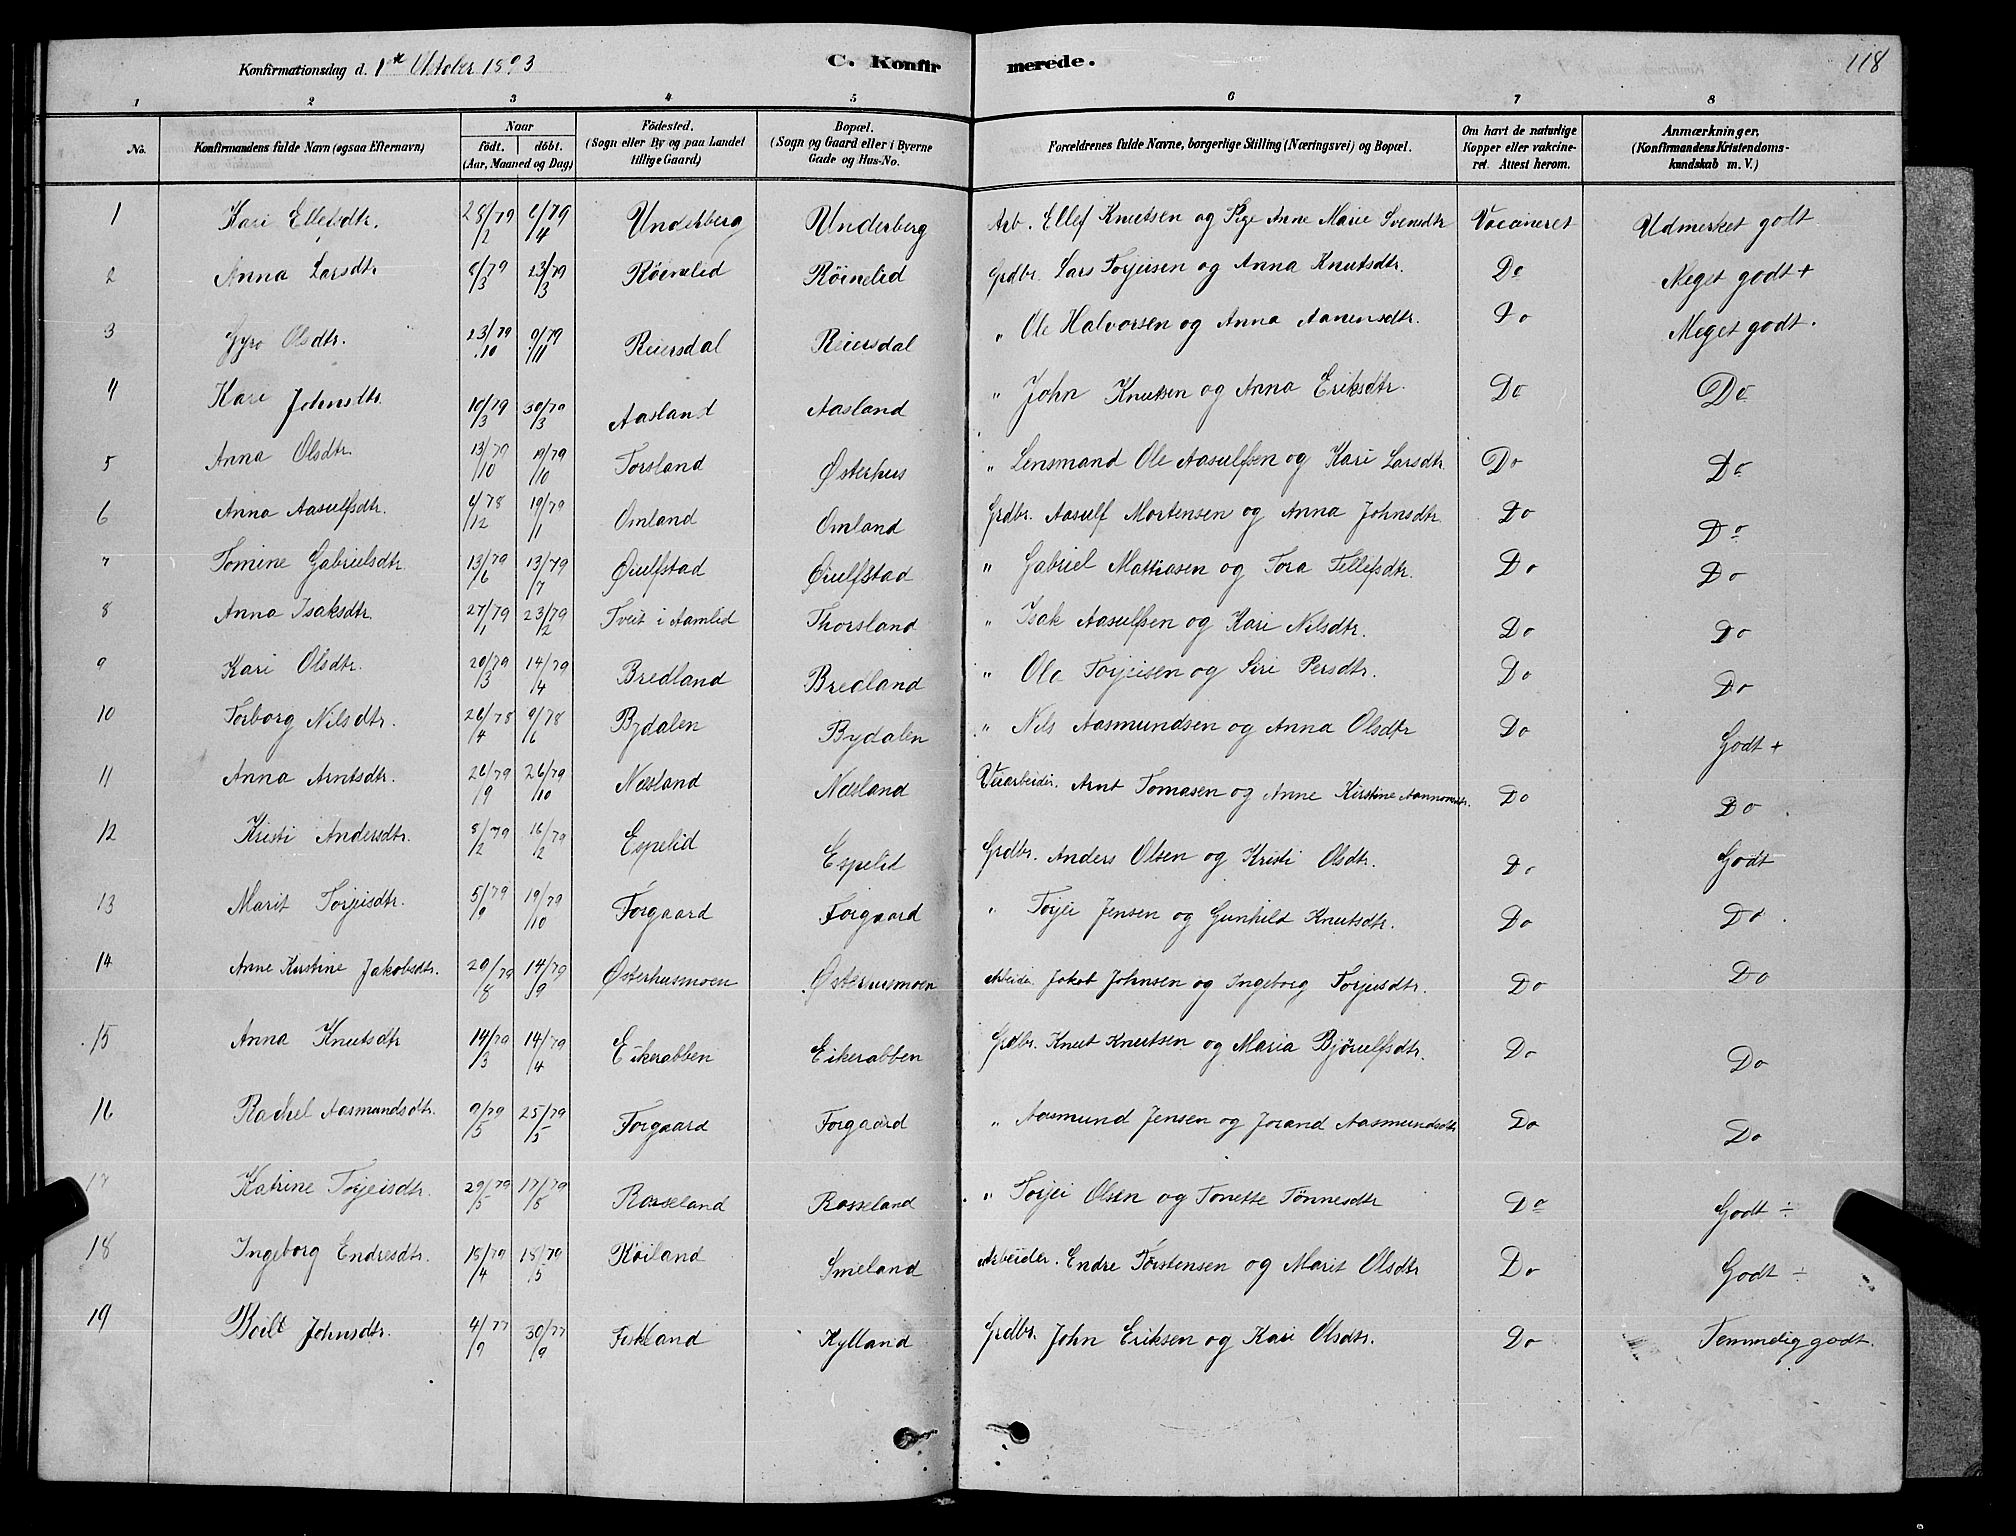 Konfirmationsdag d. 1ste Oktober 1893 C. Konfirmerede. 118
1 2 3 4 5 6 7 8
No. Konfirmandens fulde Navn (ogsaa Efternavn) Naar födt. döbt. (Aar, Maaned og Dag) Födested. (Sogn eller By og paa Landet tillige Gaard) Bopæl. (Sogn og Gaard eller i Byerne Gade og Hus-No. Forældrenes fulde Navne, borgerlige Stilling (Næringsvei) og Bopæl. Om havt de naturlige Kopper eller vakcineret. Attest herom. Anmærkninger. (Konfirmandens Kristendomskundskab m. V.)
1 Kari Ellefsdtr. 28/2 79 6/4 79 Underberg Underberg Arb. Ellef Knutsen og Pige Anne Marie Svensdtr Vaccineret Udmerket godt
2 Anna Larsdtr 8/3 79 23/3 79 Röinelid Röinelid Grdbr. Lars Torjusen og Anna Knutsdtr. Do Meget godt +
3 Gyro Olsdtr. 23/10 79 9/11 79 Reiersdal Reiersdal " Ole Halvorsen og Anna Aanensdtr. Do Meget godt.
4 Kari Johnsdtr. 10/3 79 30/3 79 Aasland Aasland " John Knutsen og Anna Eriksdtr. Do Do
5 Anna Olsdtr. 13/10 79 19/10 79 Torsland Østerhus " Lensmand Ole Aasulfsen og Kari Larsdtr Do Do
6 Anna Aasulfsdtr. 4/12 78 19/1 79 Omland Omland Grdbr. Aasulf Mortensen og Anna Johnsdtr. Do Do
7 Tomine Gabrielsdtr. 13/6 79 13/7 79 Øiulfstad Øiulfstad " Gabriel Mathiasen og Tora Tellefsdtr. Do Do
8 Anna Isaksdtr. 27/1 79 23/2 79 Tveit i Aamlid Thorsland " Isak Aasulfsen og Kari Nilsdtr. Do Do
9 Kari Olsdtr. 20/3 79 14/4 79 Bredland Bredland " Ole Torjeisen og Siri Persdtr. Do Do
10 Torborg Nilsdtr. 26/4 78 9/6 78 Bydalen Bydalen " Nils Aasmundsen og Anna Olsdtr Do Godt +
11 Anna Arntsdtr. 26/9 79 26/10 79 Næsland Næsland Veiarbeider. Arnt Tomasen og Anne Kirstine Do Do
12 Kristi Andersdtr. 8/2 79 16/2 79 Espelid Espelid Grdbr. Anders Olsen og Kristi Olsdtr. Do Godt
13 Marit Torjeisdtr. 5/9 79 19/10 79 Forgaard Forgaard " Torjei Jensen og Gunhild Knutsdtr. Do Do.
14 Anne Kirstine Jakobsdtr. 20/8 79 14/9 79 Østerhusmoen Østerhusmoen Arbeider Jakob Johnsen og Ingeborg Torjusdtr. Do Do
15 Anna Knutsdtr 14/3 79 14/4 79 Eikerabben Eikerabben Grdbr. Knut Knutsen og Maria Björuelfsdtr. Do Do
16 Rachel Aasmundsdtr. 9/5 79 25/5 79 Forgaard Forgaard " Aasmund Jensen og Jorand Aasmundsdtr Do Do
17 Katrine Torjeisdtr. 29/5 79 17/8 79 Rosseland Rosseland " Torjei Olsen og Tonette Tönnesdtr Do Godt ÷
18 Ingeborg Endresdtr. 15/4 79 18/5 79 Röiland Smeland Arbeider. Endre Torstensen og Marit Olsdtr Do Godt ÷
19 Boilt Johnsdtr. 4/9 77 30/9 77 Fiskland Kylland Grdbr. John Eriksen og Kari Olsdtr. Do Temmelig godt.